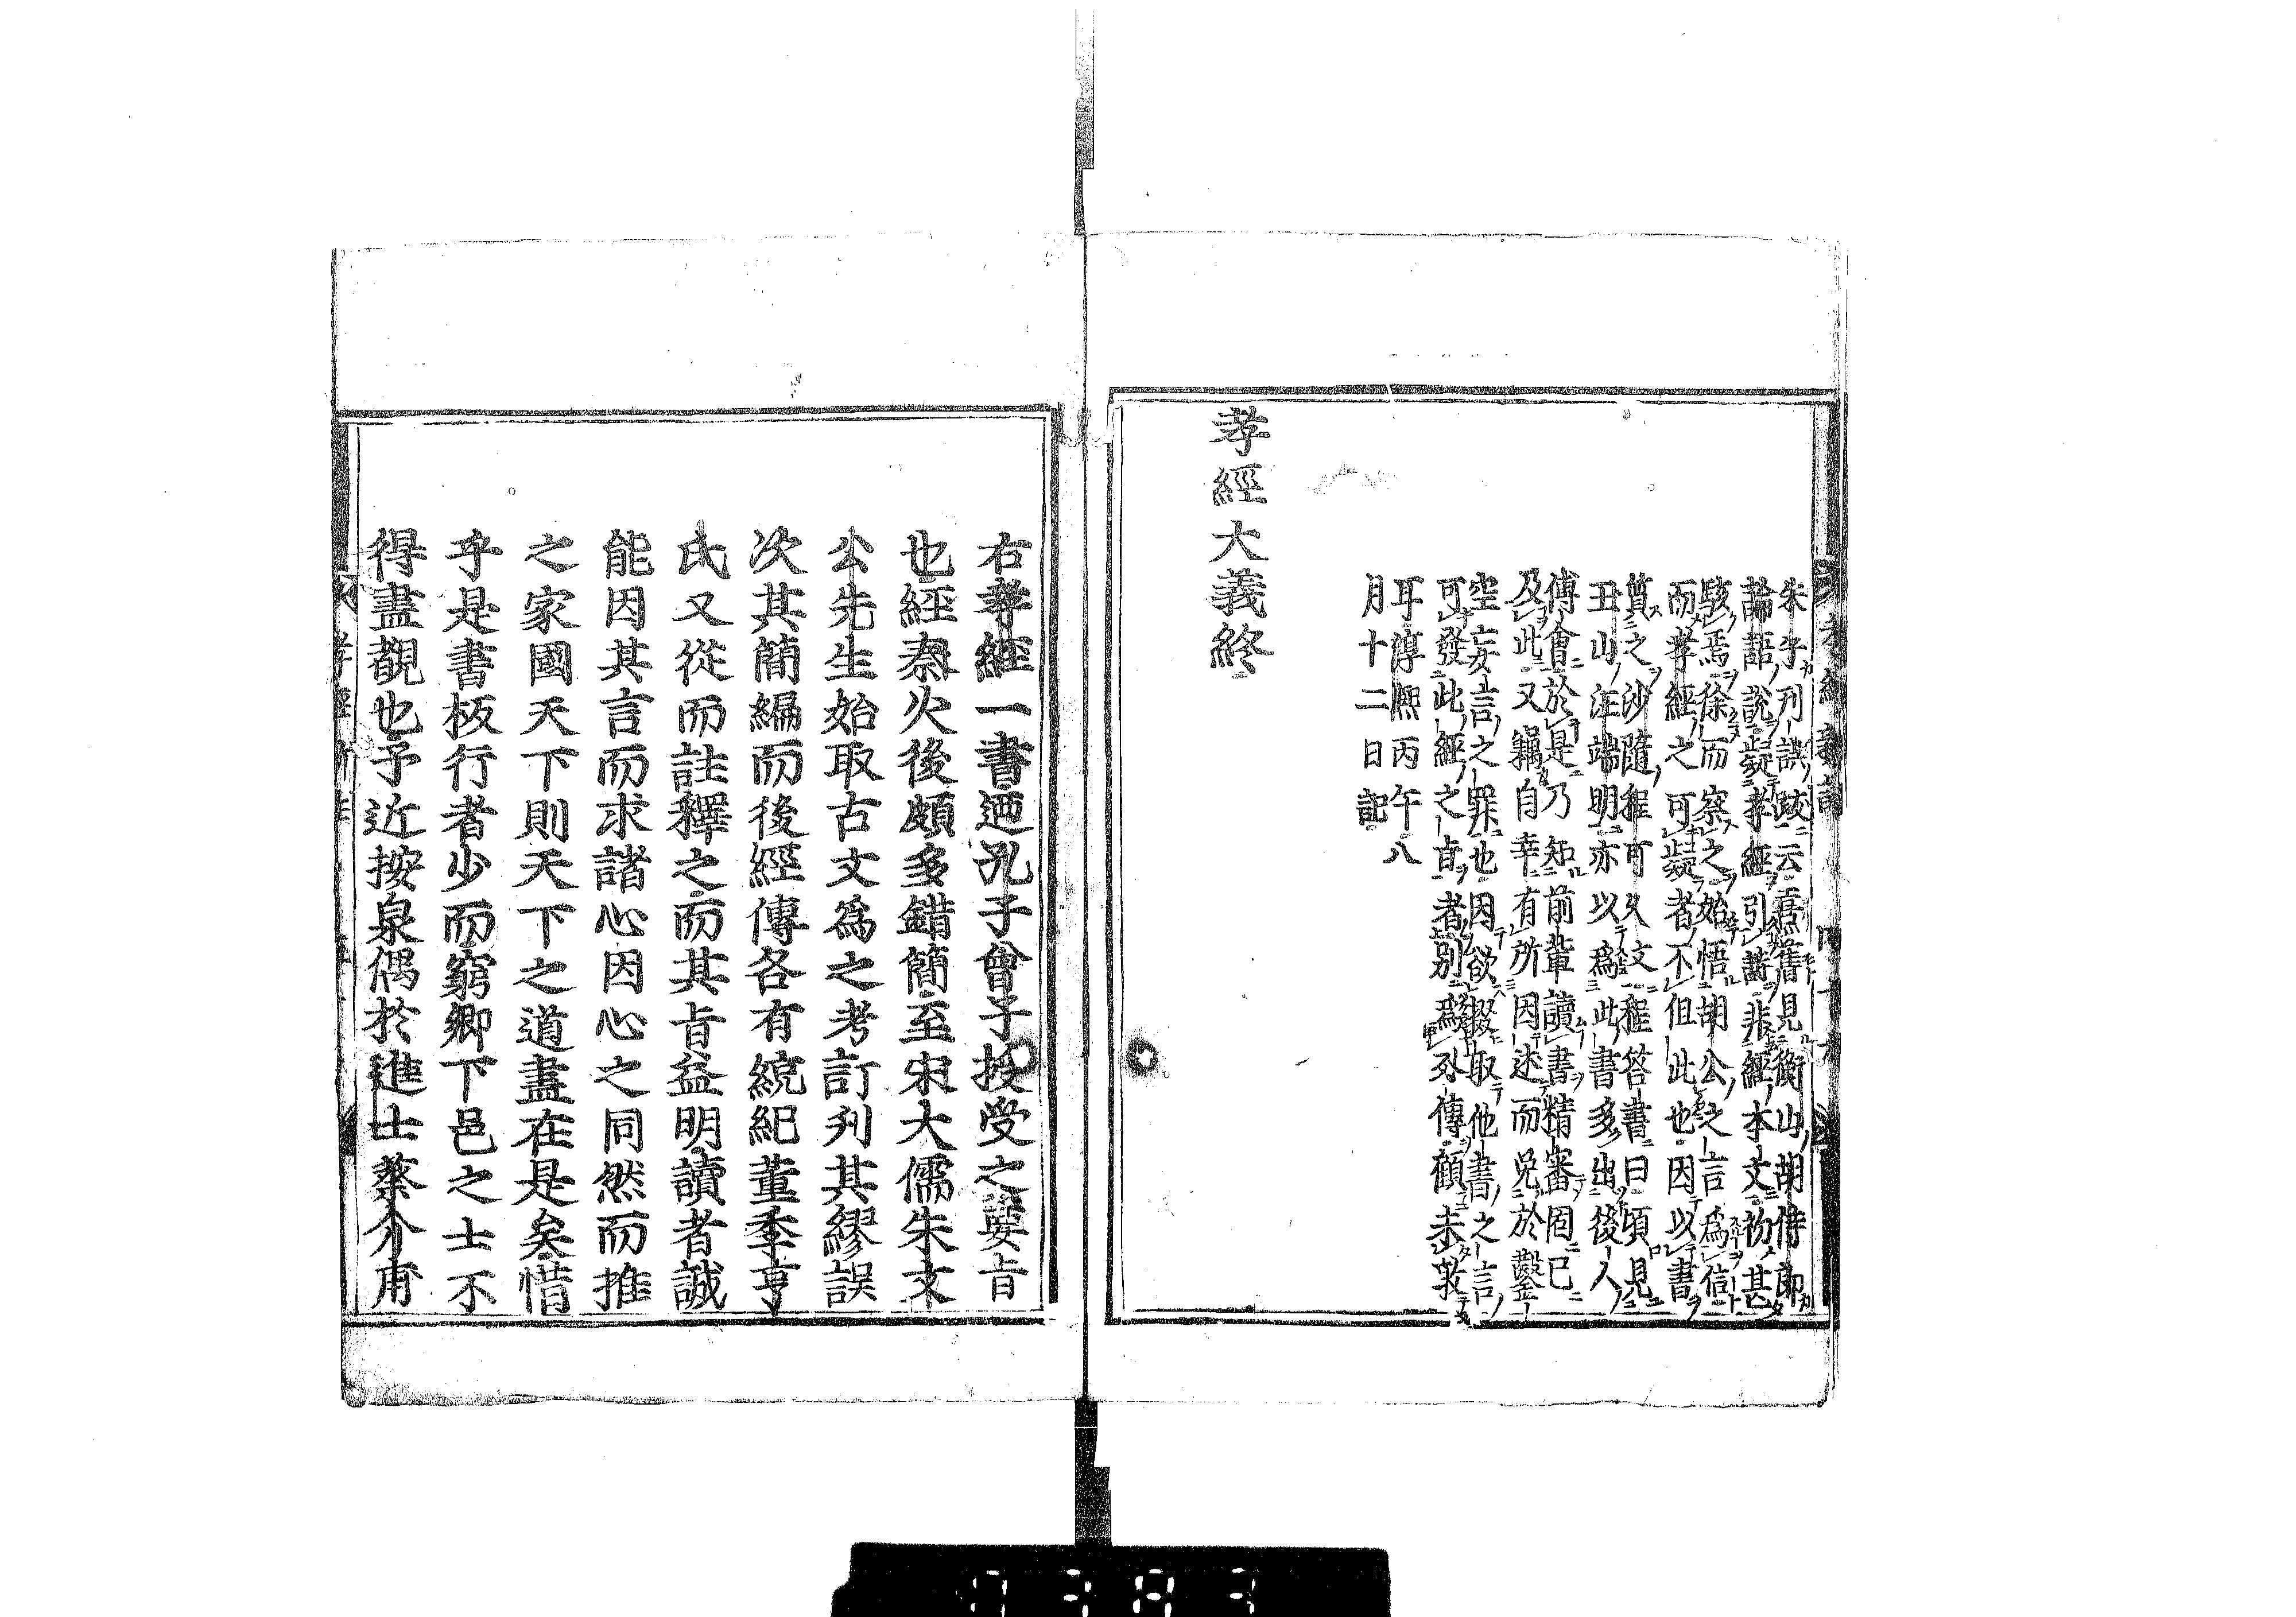 朱子刋誤跋云熹舊見衡山胡侍郎
論語說疑孝經引詩非經本文初甚
駭焉徐而察之始悟胡公之言爲信
而孝經之可疑者不但此也因以書
質之沙隨程可久丈程答書曰頃見
玉山汪端明亦以爲此書多出後人
傅會於是乃知前輩讀書精審固已
及此又竊自幸有所因述而免於鑿
空妄言之罪也因欲掇取他書之言
可發此經之旨者別爲外傳顧未敢
耳淳熙丙午八
月十二日記
孝經大義終
右孝經一書廼孔子曾子授受之要旨
也經秦火後頗多錯簡至宋大儒朱文
公先生始取古文爲之考訂刋其繆誤
次其簡編而後經傳各有統紀董季亨
氏又從而註釋之而其旨益明讀者誠
能因其言而求諸心因心之同然而推
之家國天下則天下之道盡在是矣惜
乎是書板行者少而窮鄉下邑之士不
得盡觀也予近按泉偶於進士蔡介甫